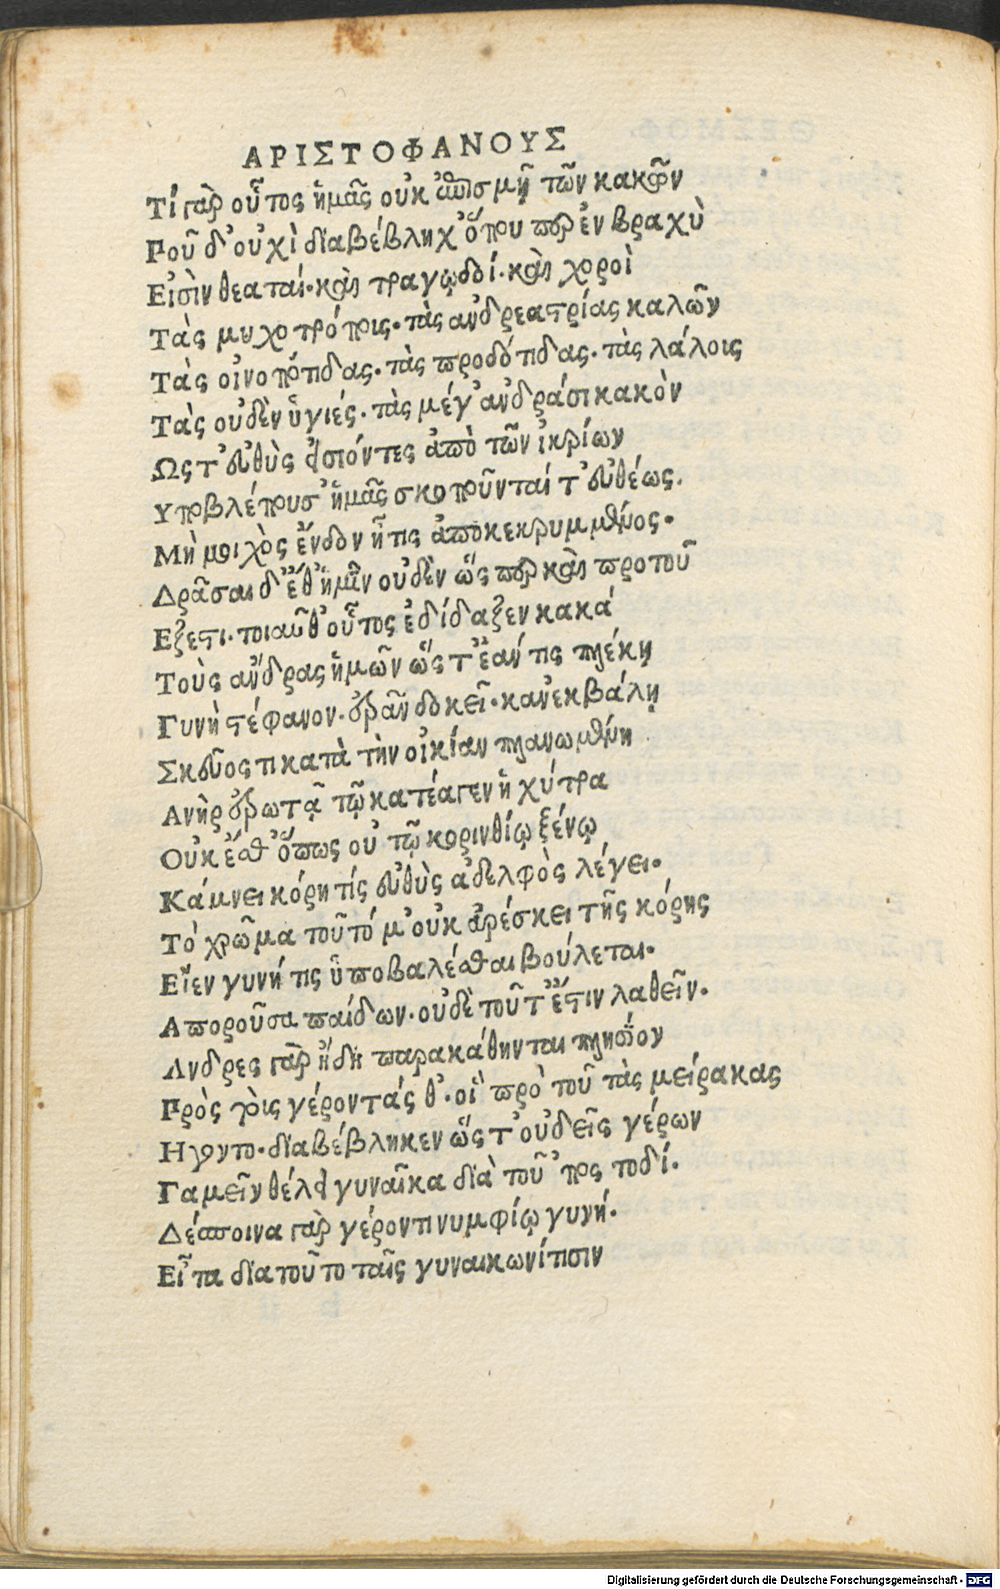 ΑΡΙΣΤΟΦΑΝΟΥΣ
Τί γὰρ οὗτος ἡμᾶς οὐκ ἐπισμῇ τῶν κακῶν
Ποῦ δ' οὐχὶ διαβέβληχ' ὅπου περ ἐν βραχὺ
Εἰσὶν θεαταί· καὶ τραγῳδοί· καὶ χοροὶ
Τὰς μυχοτρόποις· τὰς ἀνδρεαστρίας καλῶν
Τὰς οἰνοπότιδας· τὰς προδότιδας· τὰς λάλοις
Τὰς οὐδὲν ὑγιές· τὰς μέγ' ἀνδράσι κακὸν
Ως τ' εὐθὺς εἰσιόντες ἀπὸ τῶν ἰκρίων
Υποβλέπουσ' ἡμᾶς σκοποῦνταί τ' εὐθέως.
Μὴ μοιχὸς ἔνδον ἦ τις ἀποκεκρυμμένος·
Δρᾶσαι δ' ἔθ' ἡμῖν οὐδὲν ὥς περ καὶ προτοῦ
Εξεστι· τοιαῦθ' οὗτος ἐδίδαξεν κακά
Τοὺς ἄνδρας ἡμῶν ὥς τ' ἐάν τις πλέκῃ
Γυνὴ στέφανον· ἐρᾶν δοκεῖ· κἀνἐκβάλῃ
Σκεῦος τι κατὰ τὴν οἰκίαν πλανωμένη
Ανὴρ ἐρωτᾷ τῷ κατέαγεν ἡ χύτρα
Οὐκ ἔσθ' ὅπως οὐ τῷ κορινθίῳ ξένῳ
Κάμνει κόρη τίς εὐθὺς ἀδελφὸς λέγει·
Τὸ χρῶμα τοῦτό μ' οὐκ ἀρέσκει τῆς κόρης
Εἶεν γυνή τις ὑποβαλέσθαι βούλεται·
Αποροῦσα παίδων· οὐδὲ τοῦτ' ἔστιν λαθεῖν·
Ανδρες γὰρ ἤδη παρακάθηνται πλησίον
Πρὸς τοις γέροντάς θ'· οἳ πρὸ τοῦ τὰς μείρακας
Ηγοντο· διαβέβληκεν ὥς τ' οὐδεῖς γέρων
Γαμεῖν θέλει γυναῖκα διὰ τοῦ 'πος τοδί·
Δέσποινα γὰρ γέροντι νυμφίῳ γυνή·
Εἶτα διατοῦτο ταῖς γυναικωνίτισιν
Digitalisierung gefördert durch die Deutsche Forschungsgemeinschaft - DFG